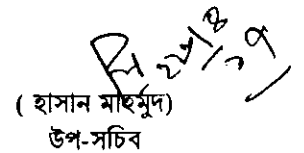 ২২/৪/১৭
( হাসান মাহমুদ)
উপ-সচিব